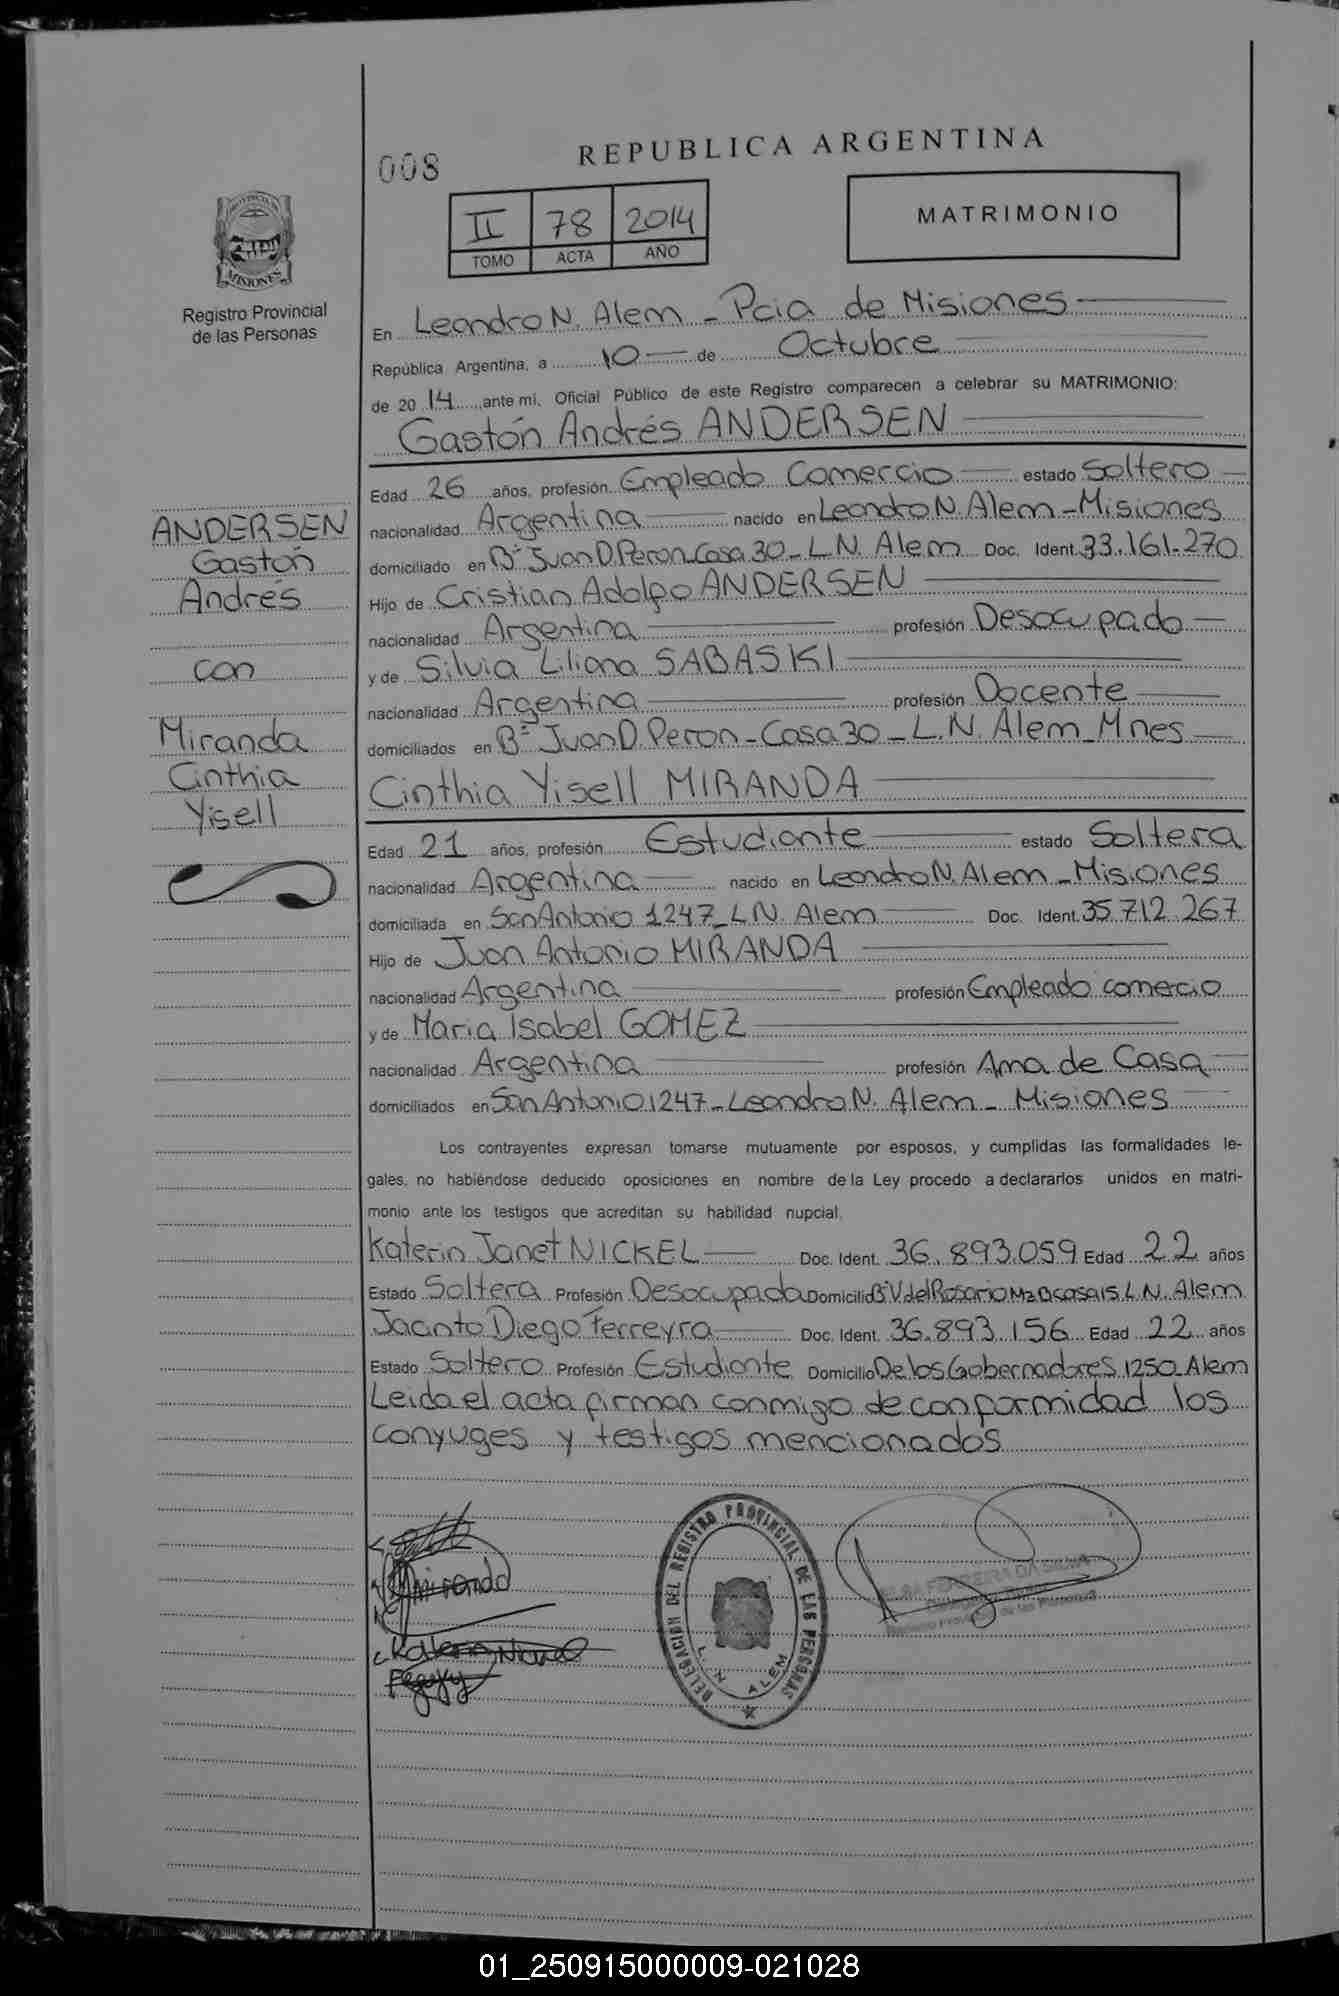 008
REPUBLICA ARGENTINA
II 78 2014
TOMO ACTA AÑO
MATRIMONIO
PROVINCIA DE
MISIONES
Registro Provincial
de las Personas
En Leandro N. Alem - Pcia de Misiones
República Argentina, a 10 de Octubre
de 2014, ante mi, Oficial Público de este Registro comparecen a celebrar su MATRIMONIO:
Gastón Andrés ANDERSEN
Edad 26 años, profesión Empleado Comercio estado Soltero
nacionalidad Argentina nacido en Leandro N. Alem - Misiones
domiciliado en Bº Juan D. Peron Casa 30 - L.N. Alem Doc. Ident. 33.161.270
Hijo de Cristian Adolfo ANDERSEN
nacionalidad Argentina profesión Desocupado
y de Silvia Liliana SABASKI
nacionalidad Argentina profesión Docente
domiciliados en Bº Juan D. Peron - Casa 30 - L.N. Alem - Mnes
Cinthia Yisell MIRANDA
Edad 21 años, profesión Estudiante estado Soltera
nacionalidad Argentina nacido en Leandro N. Alem - Misiones
domiciliada en San Antonio 1247 - L.N. Alem Doc. Ident. 35.712.267
Hijo de Juan Antonio MIRANDA
nacionalidad Argentina profesión Empleado comercio
y de Maria Isabel GOMEZ
nacionalidad Argentina profesión Ama de Casa
domiciliados en San Antonio 1247 - Leandro N. Alem - Misiones
Los contrayentes expresan tomarse mutuamente por esposos, y cumplidas las formalidades le-
gales, no habiéndose deducido oposiciones en nombre de la Ley procedo a declararlos unidos en matri-
monio ante los testigos que acreditan su habilidad nupcial.
Katerin Janet NICKEL Doc. Ident. 36.893.059 Edad 22 años
Estado Soltera Profesión Desocupada Domicilio Bº V del Rosario Mz B casa 15 L.N. Alem
Jacinto Diego Ferreyra Doc. Ident. 36.893.156 Edad 22 años
Estado Soltero Profesión Estudiante Domicilio De los Gobernadores 1250 Alem
Leida el acta firman conmigo de conformidad los
conyuges y testigos mencionados
ANDERSEN
Gastón
Andrés
con
Miranda
Cinthia
Yisell
Miranda
Katerin Nickel
DELEGACION DEL REGISTRO PROVINCIAL DE LAS PERSONAS
L. N. ALEM
ELSA FERREIRA DA SILVA
Registro Provincial de las Personas
01_250915000009-021028